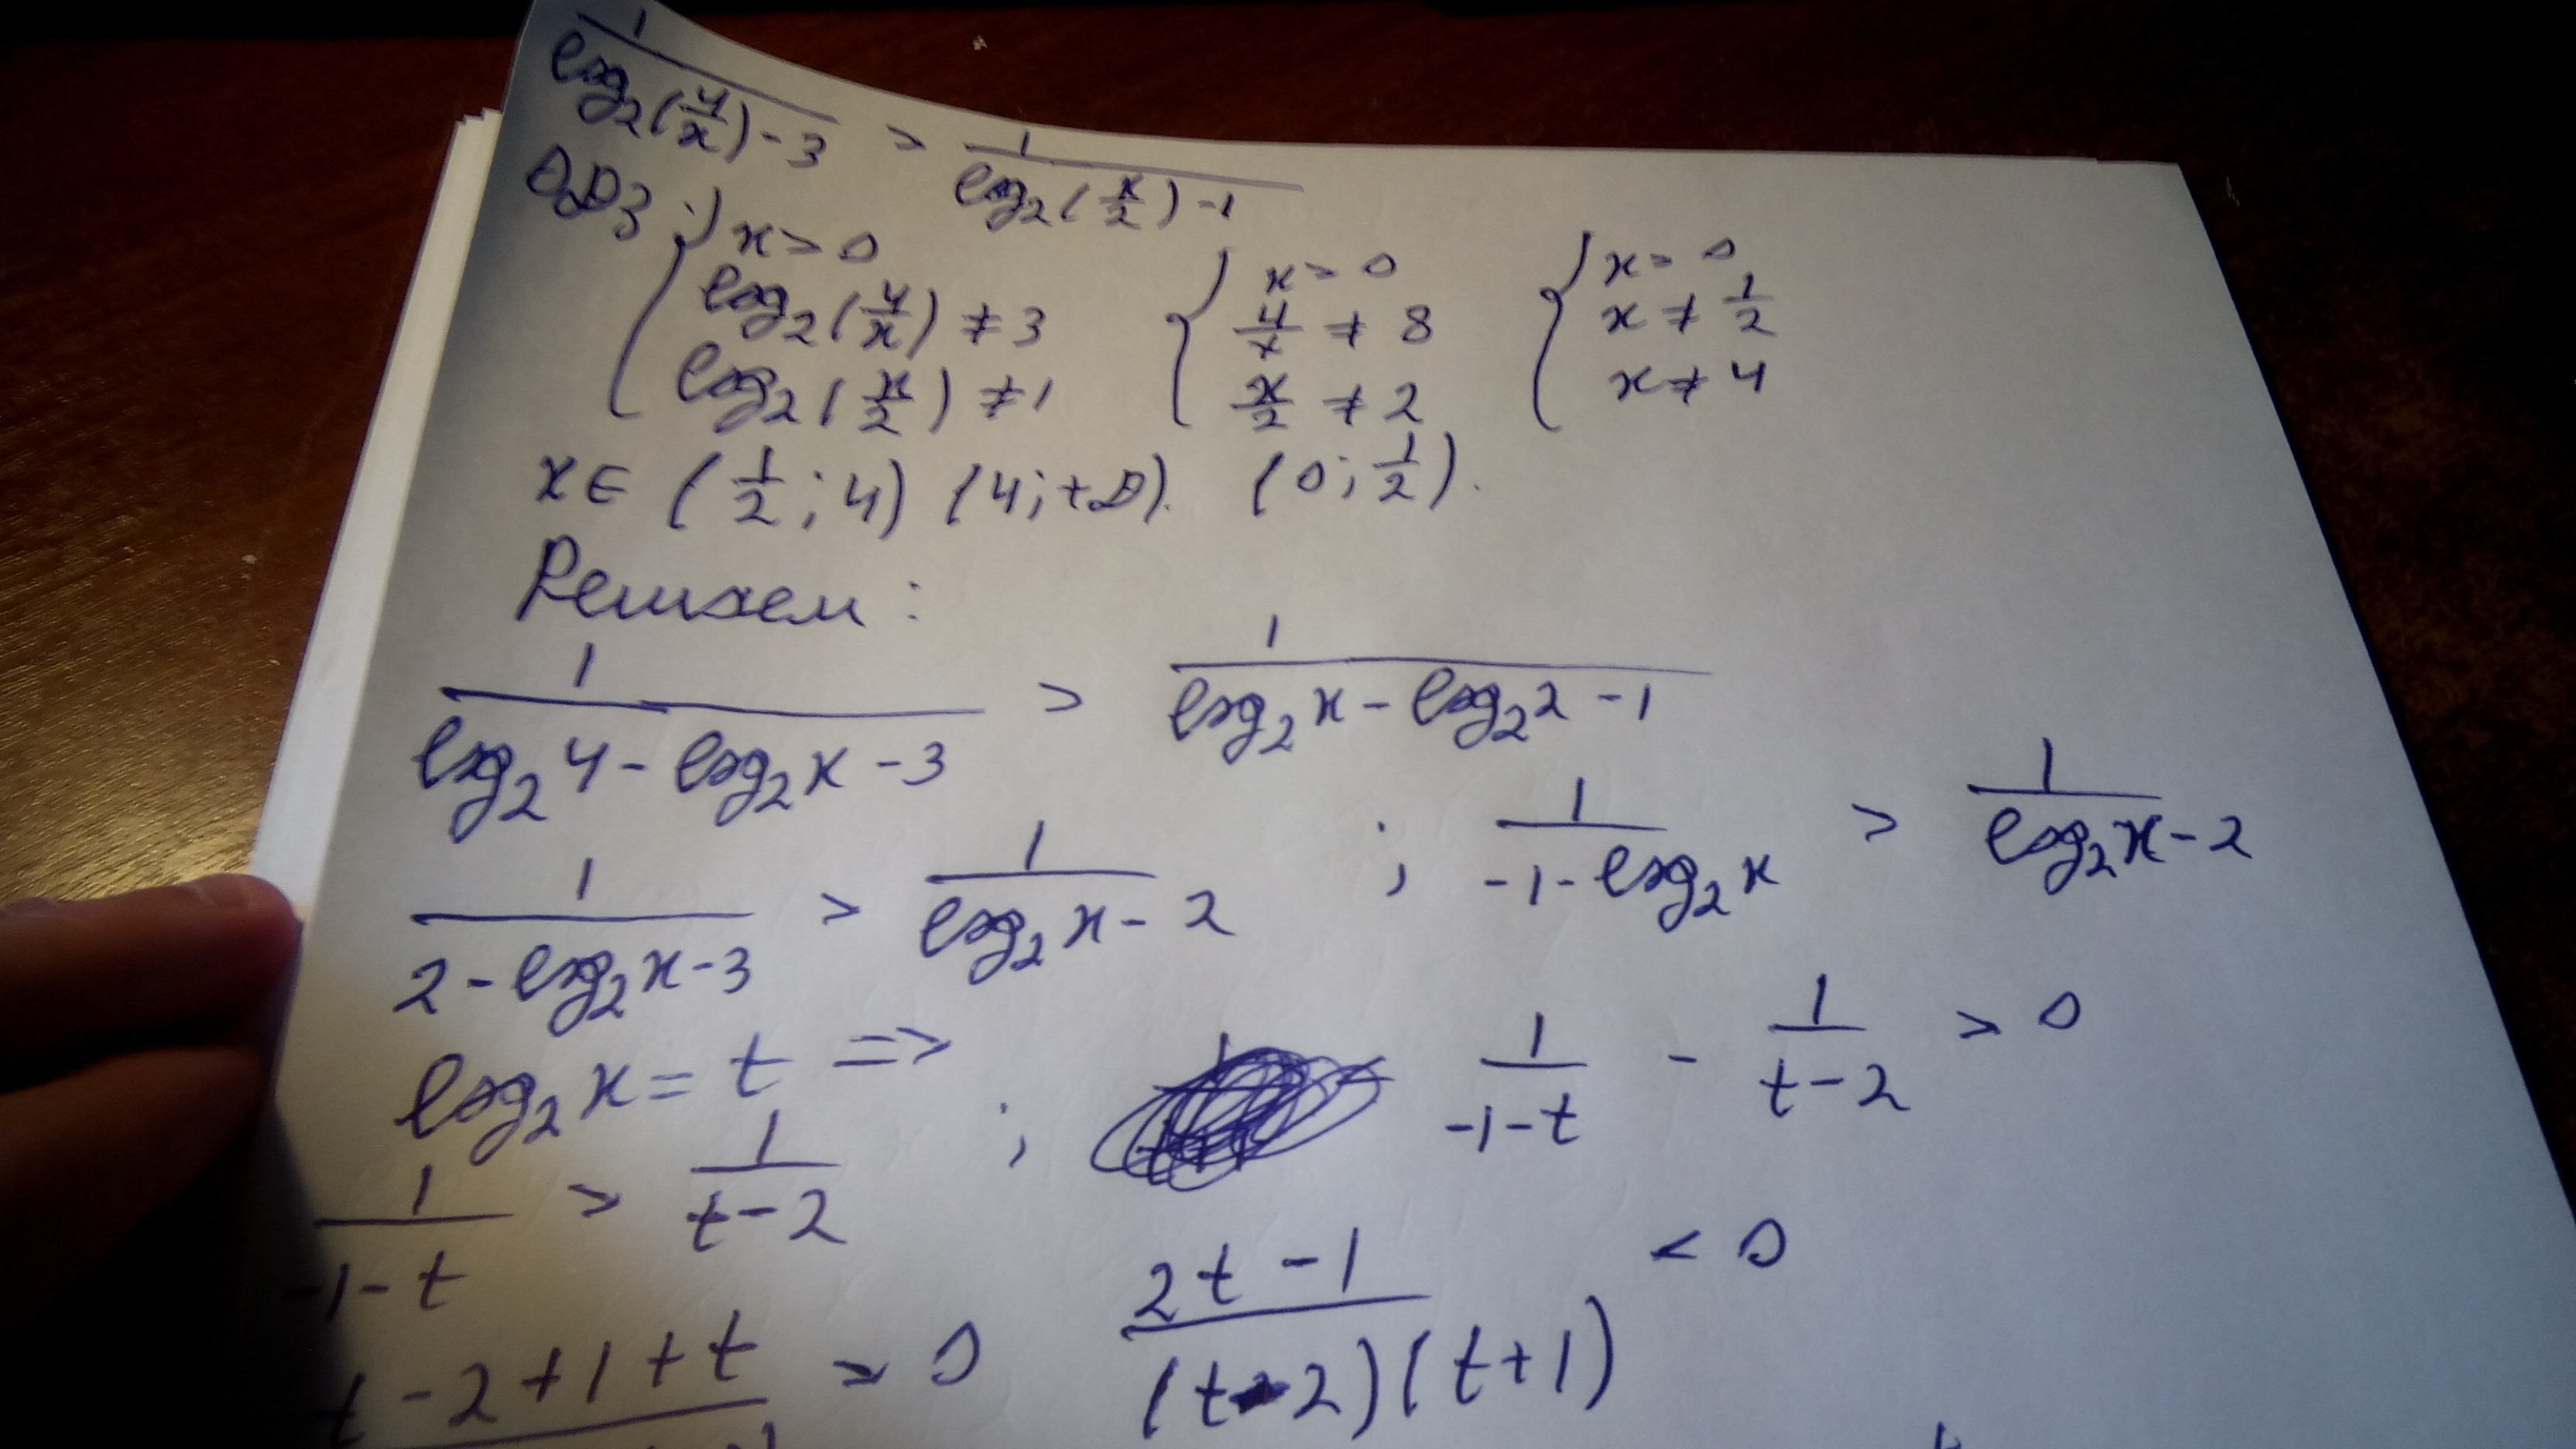 1/(log₂(4/x)-3) > 1/(log₂(x/2)-1)
ОДЗ:
{ x>0 { x>0 { x>0
log₂(4/x) ≠ 3 4/x ≠ 8 x ≠ 1/2
log₂(x/2) ≠ 1 x/2 ≠ 2 x ≠ 4
x ∈ (1/2; 4) (4; +∞). (0; 1/2).
Решаем:
1/(log₂4 - log₂x - 3) > 1/(log₂x - log₂2 - 1)
1/(2 - log₂x - 3) > 1/(log₂x - 2) ; 1/(-1 - log₂x) > 1/(log₂x - 2)
log₂x = t =>
1/(-1-t) > 1/(t-2) ; 1/(-1-t) - 1/(t-2) > 0
t-2+1+t > 0 (2t-1)/((t-2)(t+1)) < 0